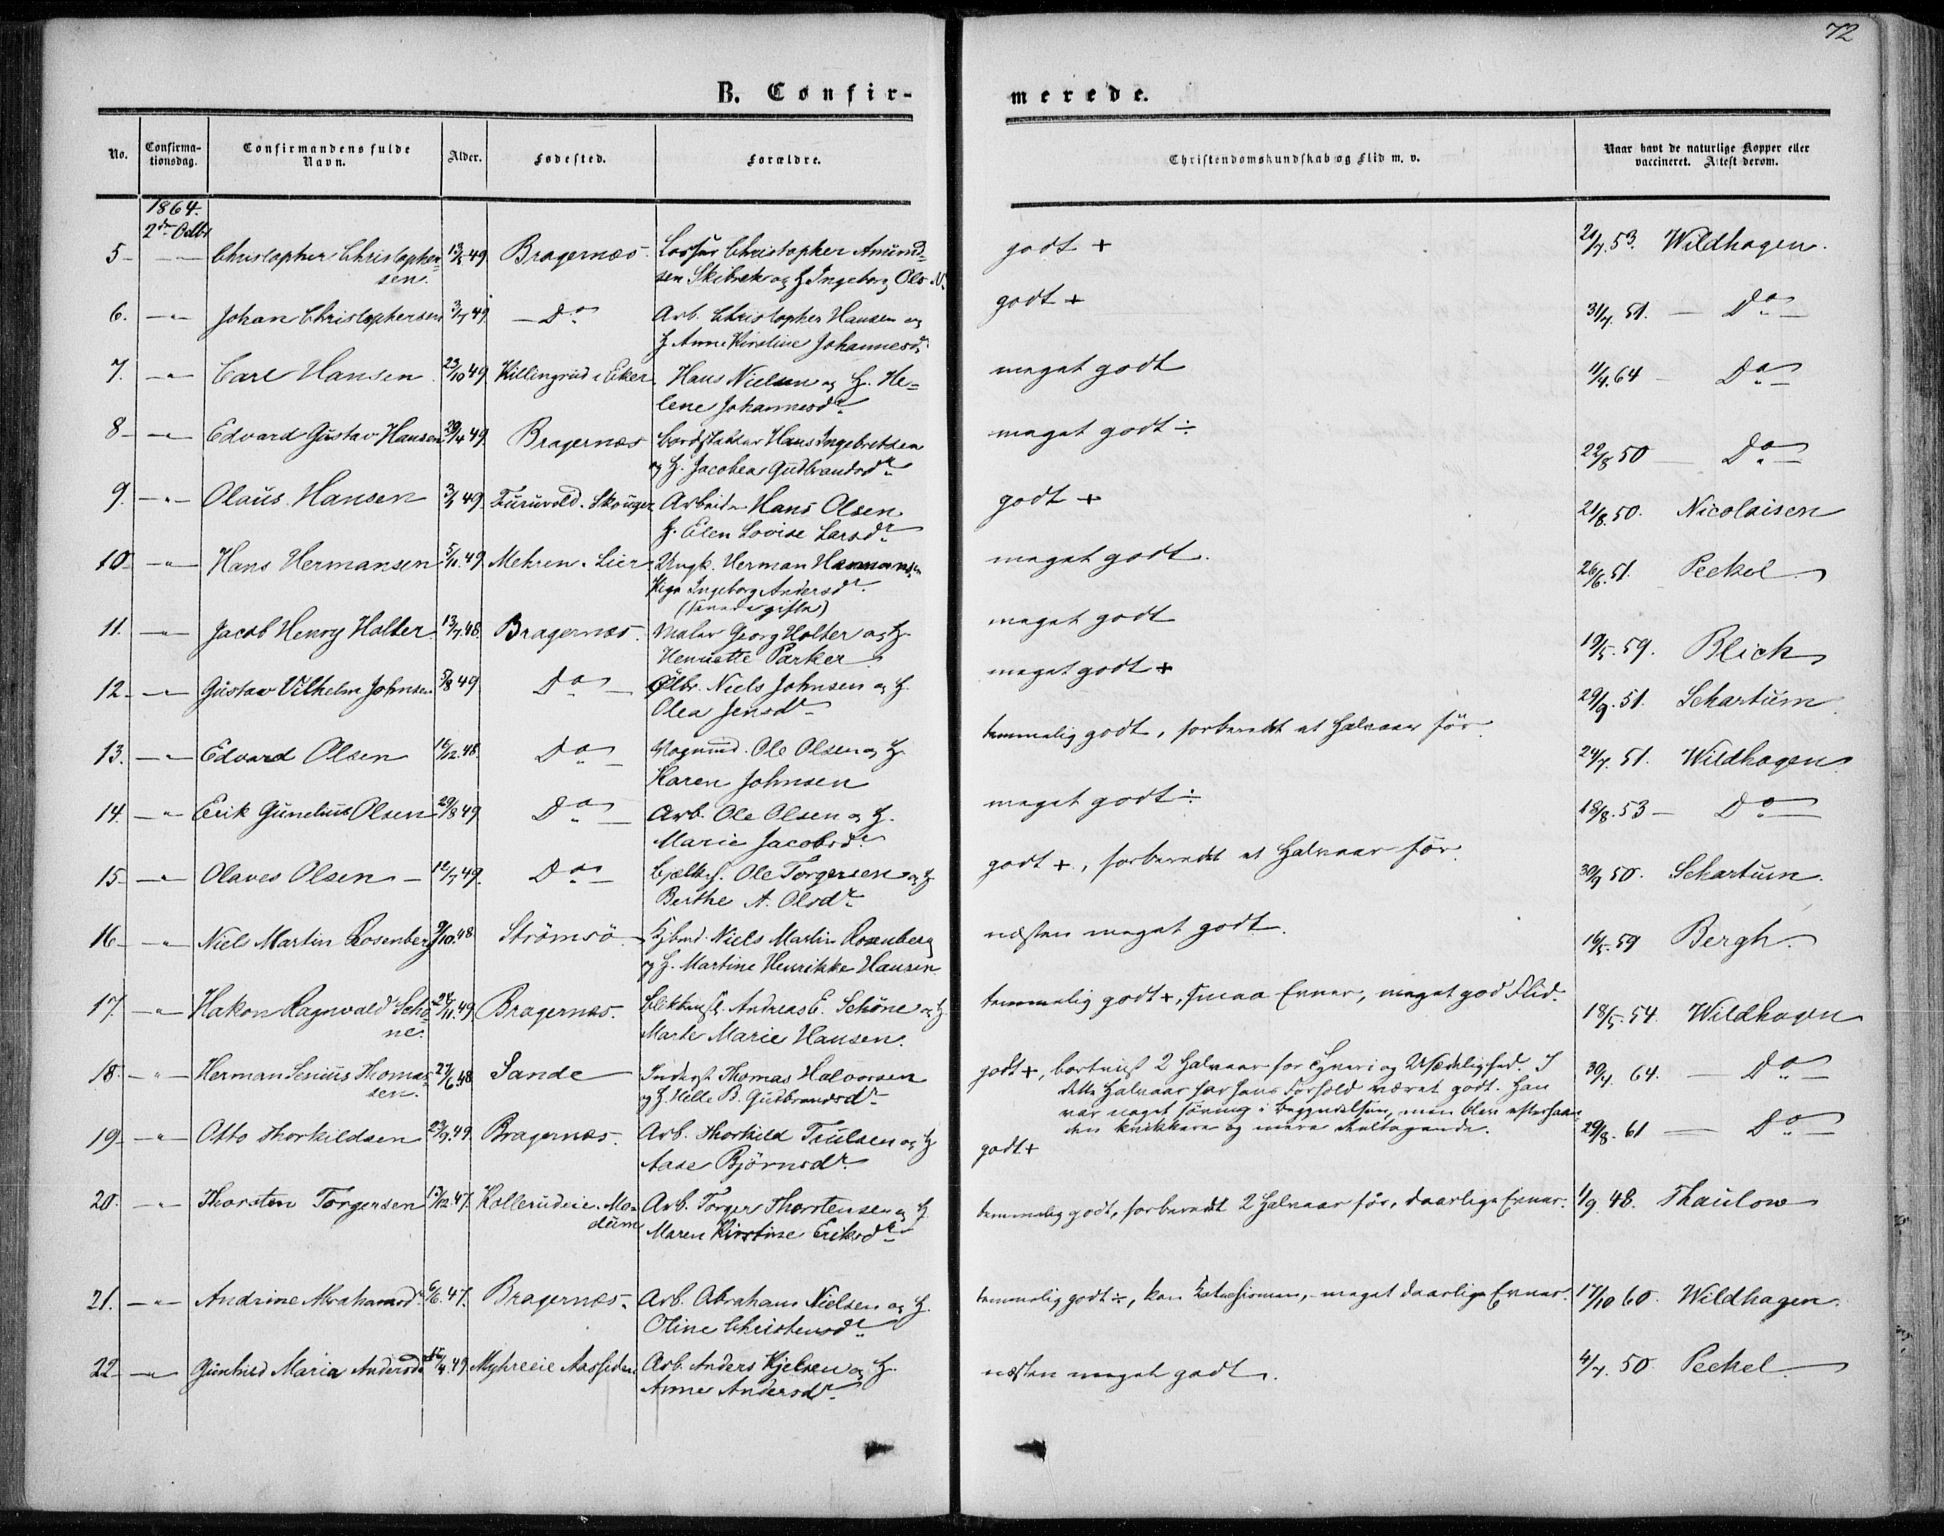 72
B. Confir-
merede.
No.
Confirma-
tionsdag.
Confirmandens fulde
Navn.
Alder.
Fødested.
Forældre.
Christendomskundskab og Flid m. v.
Naar havt de naturlige Kopper eller
vaccineret. Attest derom.
1864.
2den Octbr
5 — " — Christopher Christopher- 49 Bragernæs. Christopher Amund- godt + 21/7.53. Wildhagen.
sen. sen Skibrek og H Ingeborg Ols
6. — " — Johan Christophersen 3/7 49 — Do Arb. Christopher Hansen og godt + 31/7.51. — Do —
H Anne Kirstine Johannesdr
7. — " — Carl Hansen 23/10 49 Killingrud i Eker Hans Nielsen og H. He- meget godt 11/4.64 — Do —
lene Johannesdr
8 — " — Edvard Gustav Hansen 29/4 49. Bragernæs Hans Ingebretsen meget godt ÷ 22/8 50 — Do —
og H. Jacobea Gudbrandsdr
9. — " — Olaus Hansen 49. Skouger Arbeider Hans Olsen godt + 21/8.50. Nicolaisen
H. Elen Lovise Larsdr
10 — " — Hans Hermansen 5/11.49. Mehren i Lier Ungk. Herman Hermansen meget godt. 26/6.51. Peckel
Pige Ingeborg Andersdr.
11. — " — Jacob Henry Holter 13/7.48. Bragernæs. Maler Georg Holter og H. meget godt 19/5.59. Blich
Henriette Parker
12 — " — Gustav Vilhelm Johnsen 5/8 49 Do — Niels Johnsen og H. meget godt + 29/9.51. Schartum
Olea Jensdr
13. — " — Edvard Olsen 16/12.48. Do — Vognmd. Ole Olsen og H. temmelig godt, forberedt et Halvaar før. 24/7.51. Wildhagen
Karen Johnsen
14. — " — Erik Gunelius Olsen 29/8 49 Do — Arb. Ole Olsen og H. meget godt ÷ 18/8.53 — Do —
Marie Jacobsdr
15 — " — Olaves Olsen — 12/7 49. Do — Ole Torgersen og H. godt +, forberedt et Halvaar før. 30/9 50. Schartum.
Berthe A. Olsdr
16 — " — Niels Martin Rosenberg 9/10.48 Strömsö — Niels Martin Rosenberg næsten meget godt. 16/5.59 Bergh.
og H. Martine Henrikke Hansen
17. — " — Hakon Ragnvald Schö- 24/11.49 Bragernæs. Andreas E. Schöne og H temmelig godt +, smaa Evner, meget god Flid. 18/5.54. Wildhagen
ne. Marte Marie Hansen.
18. — " — Herman Senius Thomas- 27/6.48 Sande Thomas Halvorsen godt +, bortvist 2 Halvaar for og Usædelighed. I 30/4. 64. — Do —
sen. og H Helle B. Gudbrandsdr dette Halvaar har hans Forhold været godt. Han
var noget i Begyndelsen, men blev efterhaan-
den kvikkere og mere deltagende.
19 — " — Otto Thorkildsen 23/9.49. Bragernæs. Arb. Thorkild Trulsen og H godt + 29/8.61 — Do —
Aase Björnsdr.
20. — " — Thorsten Torgersen 13/12.47. Kollerudeie i Mo- Arb. Torger Thorstensen og H. temmelig godt, forberedt 2 Halvaar før, daarlige Evner. 1/9 48. Thaulow
dum Maren Kirstine Eriksdr
21. — " — Andrine Abrahamsdr 6/6.47. Bragernæs. Arb. Abraham Nielsen og H. temmelig godt ÷, kun Katechismen, meget daarlige Evner. 17/10 60. Wildhagen.
Oline Christensdr
22 — " — Gunhild Maria Andersdr 4.49. Myhreeie Aassiden Arb. Anders Kjelsen og H. næsten meget godt. 4/7.50. Peckel
Anne Andersdr